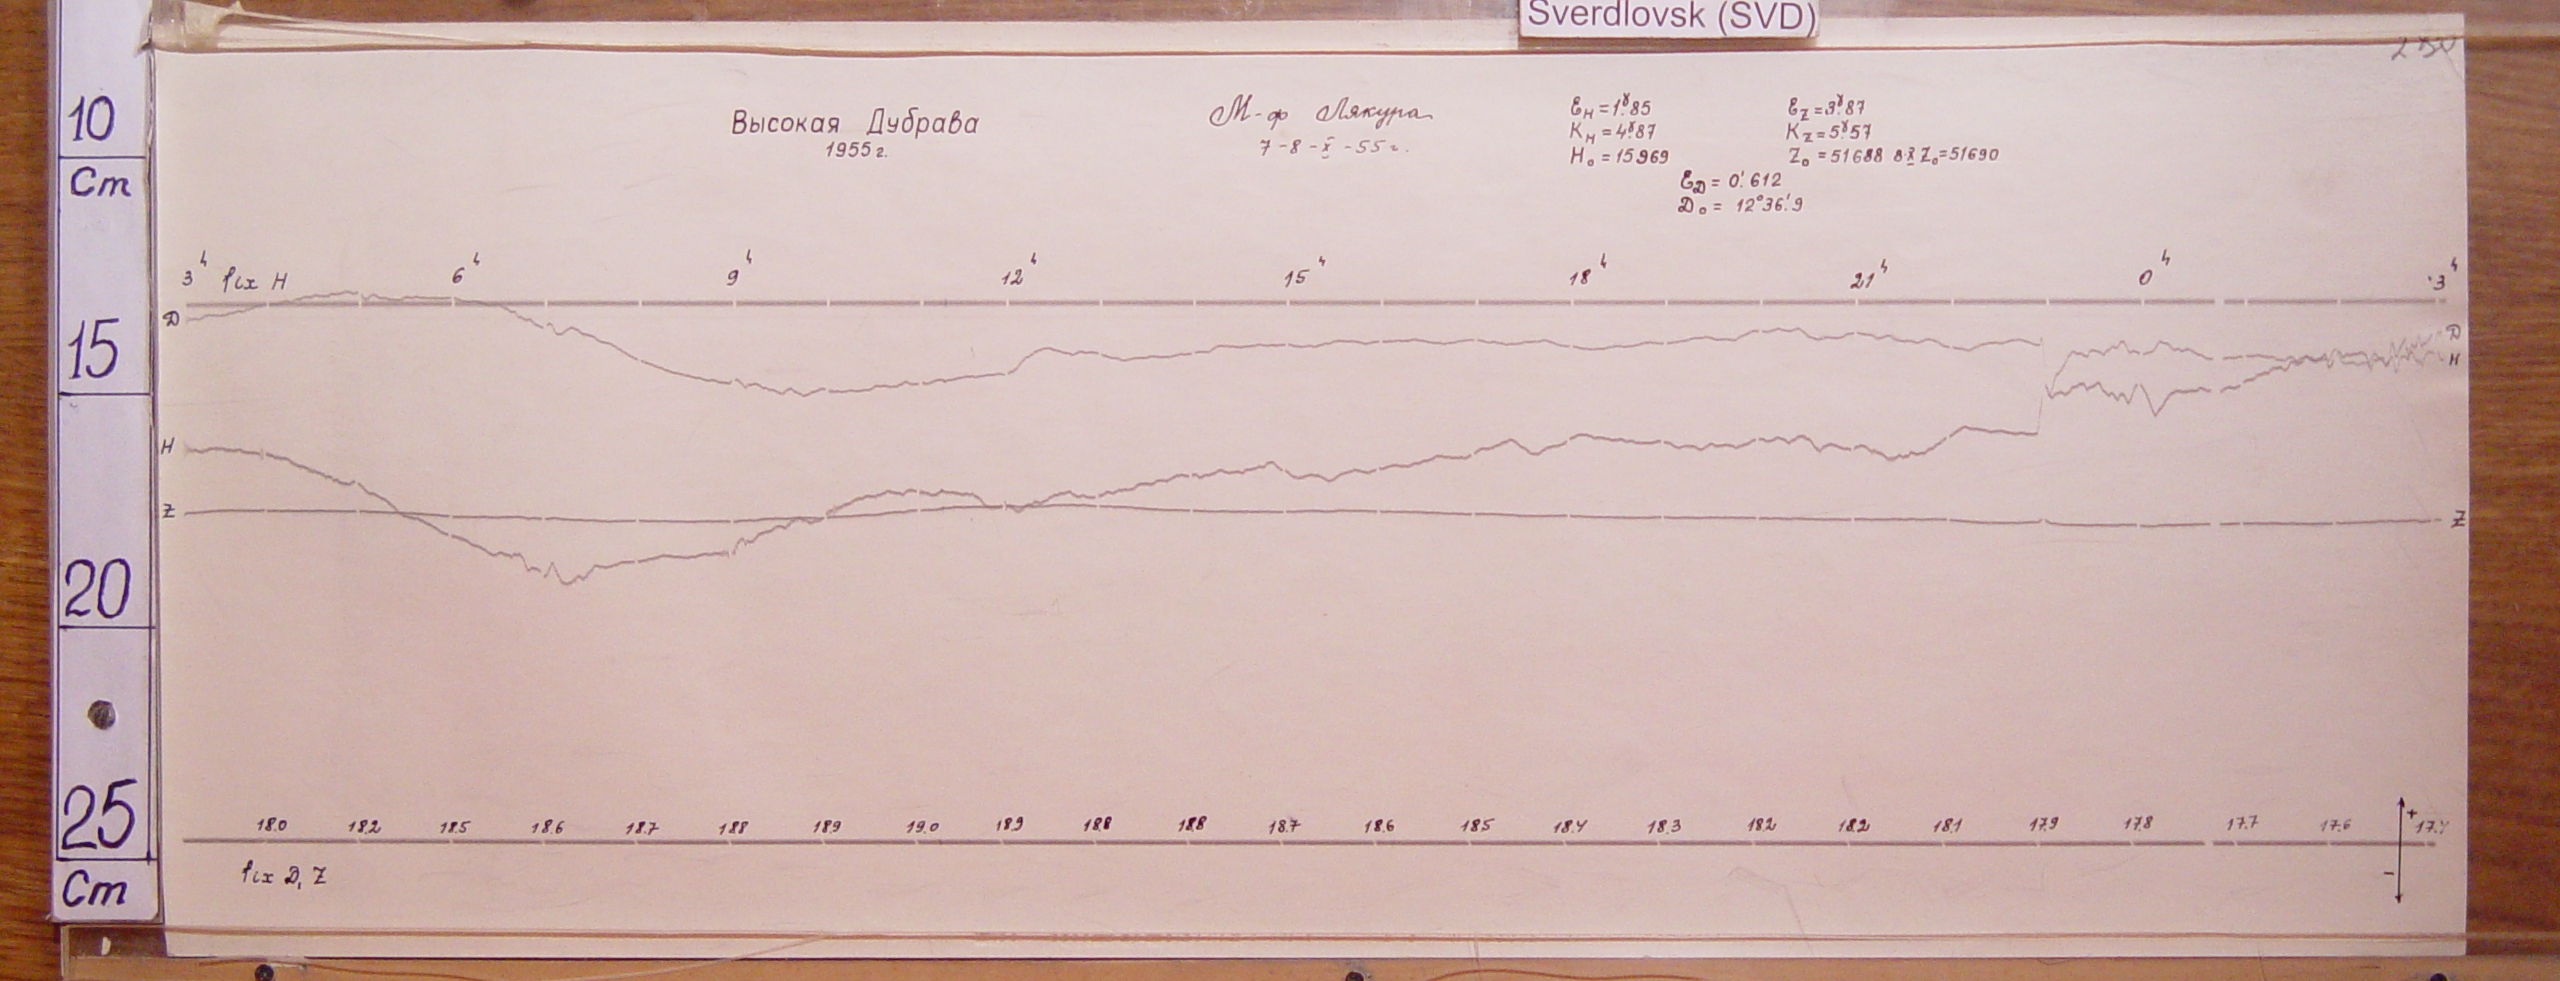 Sverdlovsk (SVD)
10
Cm
15
20
25
Cm
Высокая Дубрава
1955 г.
М-ф Лякура
7-8-X-55 г.
Ɛ_H = 1ˠ.85
K_H = 4ˠ.87
H₀ = 15969
Ɛ_Z = 3ˠ.87
K_Z = 5ˠ.57
Z₀ = 51688 в X Z₀ = 51690
Ɛ_D = 0'.612
D₀ = 12°36'.9
3ʰ 6ʰ 9ʰ 12ʰ 15ʰ 18ʰ 21ʰ 0ʰ 3ʰ
fix H
D D
H H
Z Z
18.0 18.2 18.5 18.6 18.7 18.8 18.9 19.0 18.9 18.8 18.8 18.7 18.6 18.5 18.4 18.3 18.2 18.2 18.1 17.9 17.8 17.7 17.6 17.4
+
−
fix D, Z